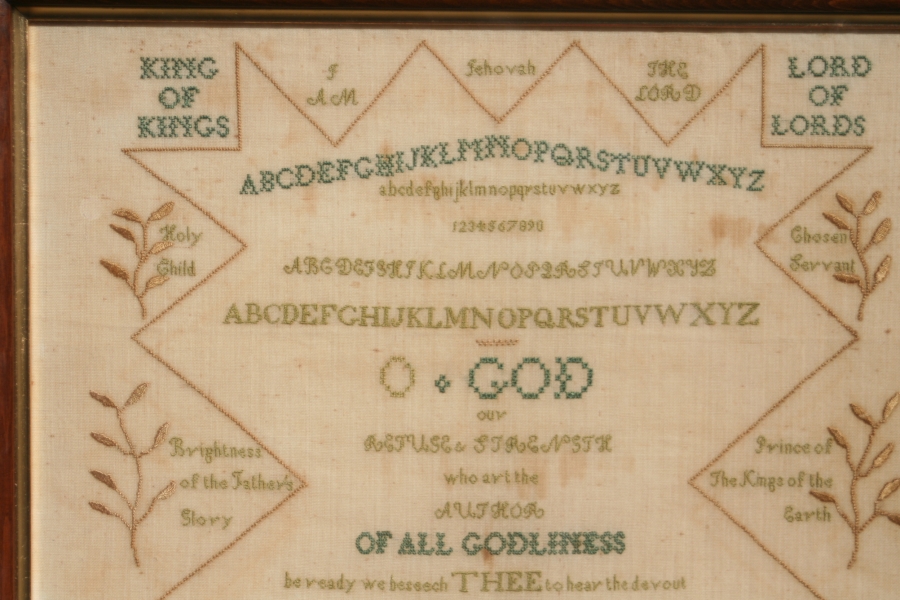 KING
OF
KINGS
I
AM
Jehovah
THE
LORD
LORD
OF
LORDS
ABCDEFGHIJKLMNOPQRSTUVWXYZ
abcdefghijklmnopqrstuvwxyz
1234567890
Holy
Child
Chosen
Servant
ABCDEFGHIKLMNOPQRSTUVWXYZ
ABCDEFGHIJKLMNOPQRSTUVWXYZ
O GOD
our
REFUSE & STRENSTH
who art the
AUTHOR
OF ALL GODLINESS
be ready we beseech THEE to hear the devout
Brightness
of the Father's
Glory
Prince of
The Kings of the
Earth